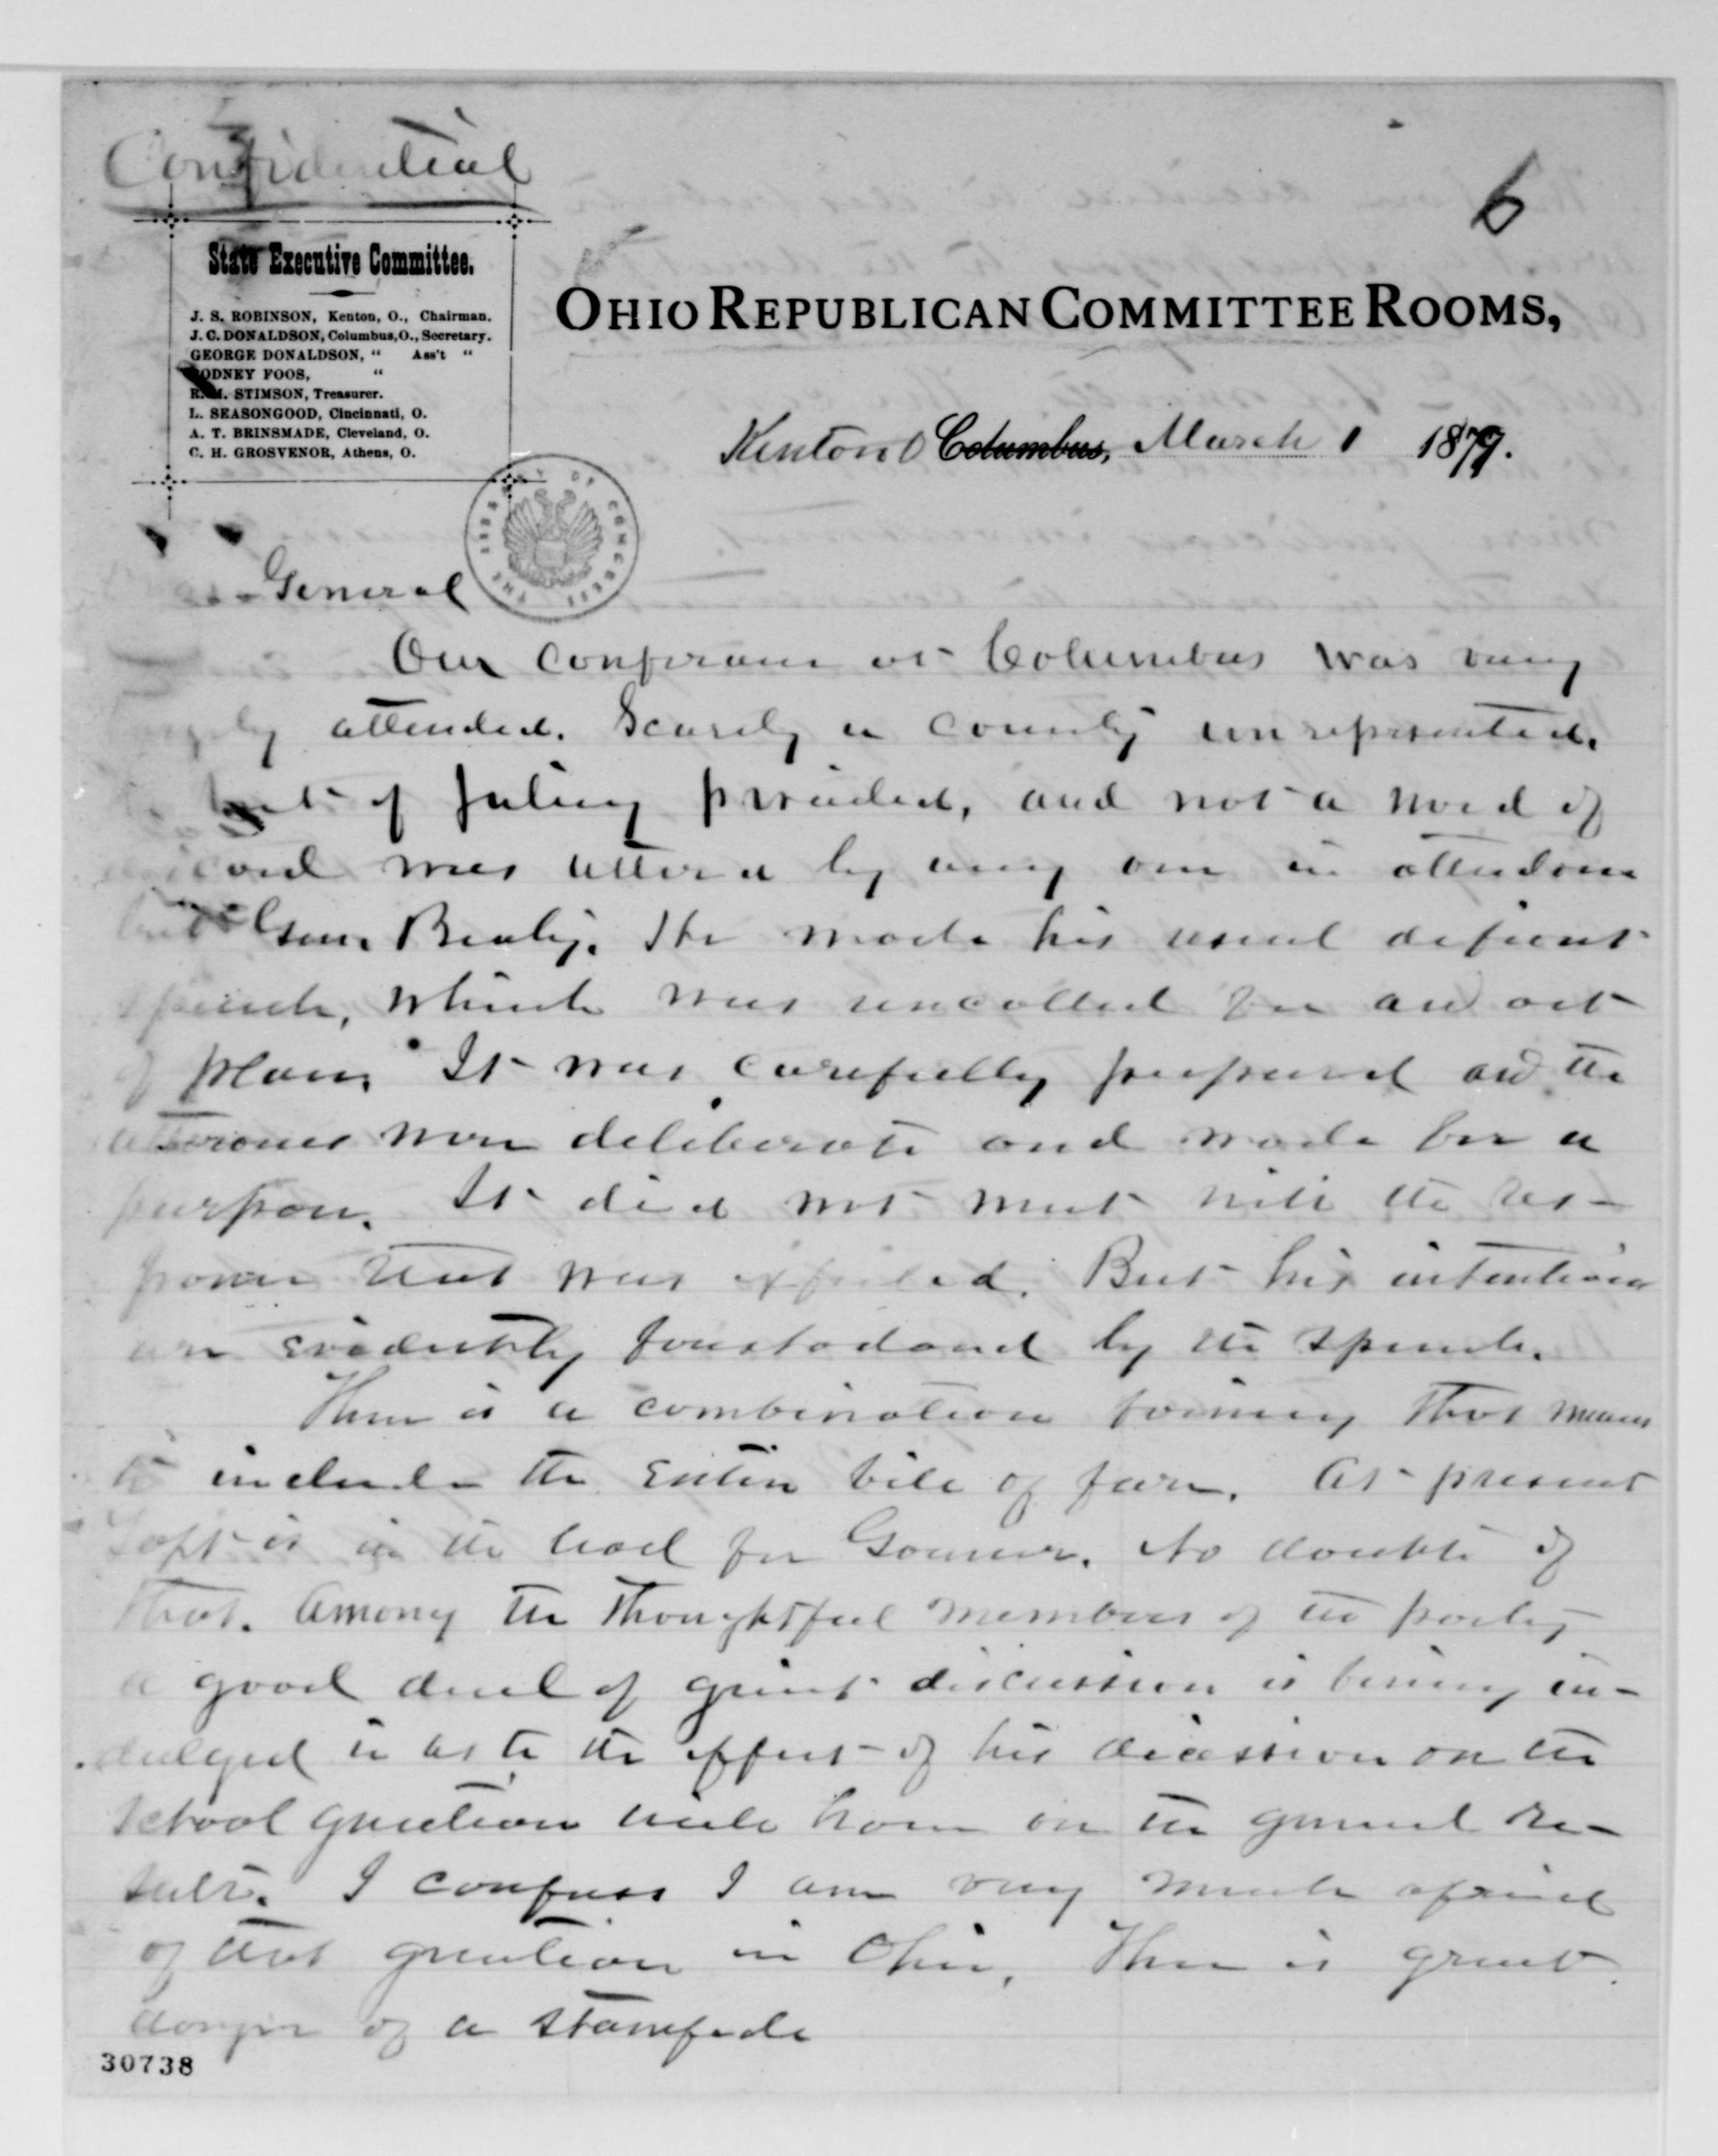 Confidential
6
State Executive Committee.
J. S. ROBINSON, Kenton, O., Chairman.
J. C. DONALDSON, Columbus, O., Secretary.
GEORGE DONALDSON, " Ass't "
RODNEY FOOS, "
R. M. STIMSON, Treasurer.
L. SEASONGOOD, Cincinnati, O.
A. T. BRINSMADE, Cleveland, O.
C. H. GROSVENOR, Athens, O.
OHIO REPUBLICAN COMMITTEE ROOMS,
Kenton O Columbus, March 1 1879.
THE LIBRARY OF CONGRESS
General
Our conference at Columbus was very
largely attended. Scarcely a county unrepresented.
best of feeling prevailed, and not a word of
discord was uttered by any one in attendance
but Genr Beatty. He made his usual defiant
speech, which was uncalled for and out
of place. It was carefully prepared and the
utterances were deliberate and made for a
purpose. It did not meet with the res-
ponse that was expected. But his intentions
are evidently foreshadowed by the speech.
There is a combination forming that means
to include the entire bill of fare. At present
Taft is in the lead for Governor. No doubt of
that. Among the thoughtful members of the party
a good deal of quiet discussion is being in-
dulged in as to the effect of his decission on the
school question will have on the general re-
sult. I confess I am very much afraid
of that question in Ohio. There is great
danger of a stampede
30738